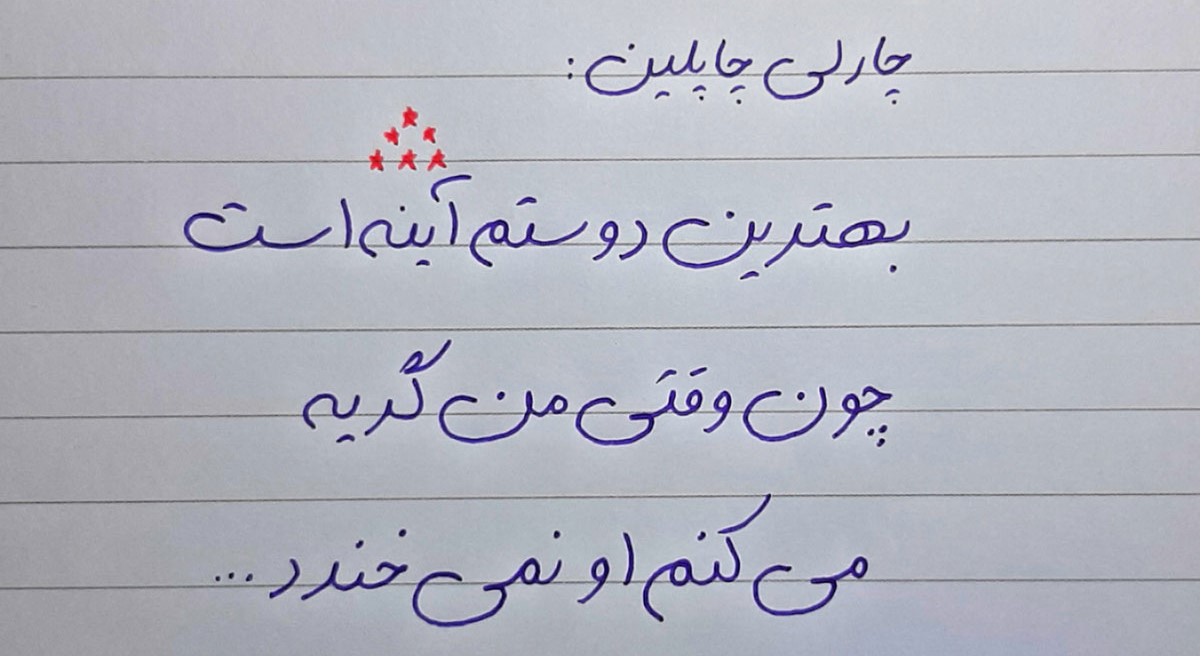 چارلی چاپلین:
بهترین دوستم آینه است
چون وقتی من گریه
می کنم او نمی خندد...